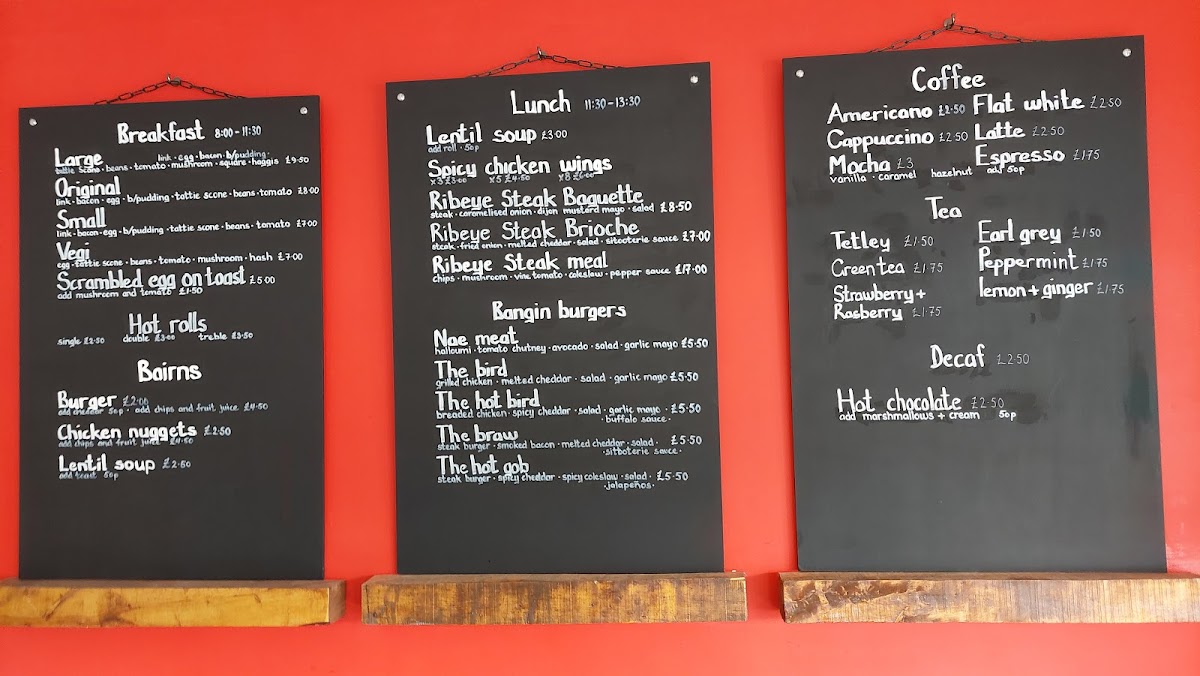 Breakfast 8:00-11:30
Large link·egg·bacon·b/pudding·
tattie scone·beans·tomato·mushroom·square·haggis £9·50
Original
link·bacon·egg·b/pudding·tattie scone·beans·tomato £8:00
Small
link·bacon·egg·b/pudding·tattie scone·beans·tomato £7:00
Vegi
egg·tattie scone·beans·tomato·mushroom·hash £7:00
Scrambled egg on toast £5:00
add mushroom and tomato £1·50
Hot rolls
single £2·50 double £3:00 treble £3·50
Bairns
Burger £2:00
add cheddar 50p· add chips and fruit juice £4·50
Chicken nuggets £2·50
add chips and fruit juice £4·50
Lentil soup £2·50
add toast 50p
Lunch 11:30-13:30
Lentil soup £3:00
add roll·50p
Spicy chicken wings
x3 £3:00 x5 £4·50 x8 £6:00
Ribeye Steak Baguette
steak·caramelised onion·dijon mustard mayo·salad £8·50
Ribeye Steak Brioche
steak·fried onion·melted cheddar·salad·sitooterie sauce £7:00
Ribeye Steak meal
chips·mushroom·vine tomato·coleslaw·pepper sauce £17:00
Bangin burgers
Nae meat
halloumi·tomato chutney·avocado·salad·garlic mayo £5·50
The bird
grilled chicken·melted cheddar·salad·garlic mayo £5·50
The hot bird
breaded chicken·spicy cheddar·salad·garlic mayo·£5·50
·buffalo sauce·
The braw
steak burger·smoked bacon·melted cheddar·salad· £5·50
·sitboterie sauce·
The hot gob
steak burger·spicy cheddar·spicy coleslaw·salad· £5·50
·jalapeños·
Coffee
Americano £2·50 Flat white £2·50
Cappuccino £2·50 Latte £2·50
Mocha £3 Espresso £1·75
vanilla·caramel hazelnut add 50p
Tea
Tetley £1·50 Earl grey £1·50
Green tea £1·75 Peppermint £1·75
Strawberry+ lemon+ginger £1·75
Rasberry £1·75
Decaf £2·50
Hot chocolate £2·50
add marshmallows + cream 50p